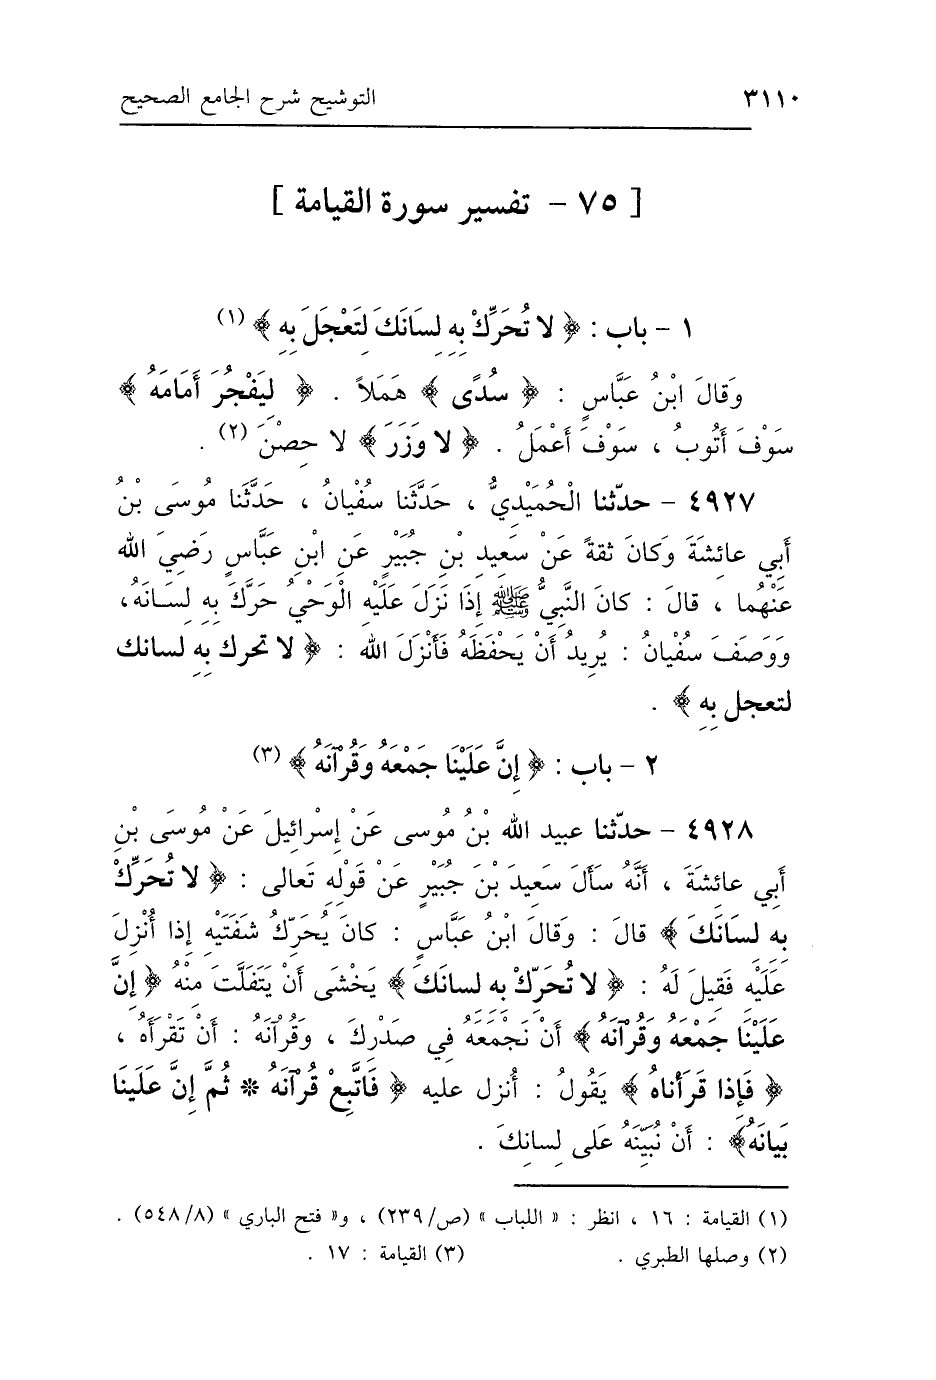 ٣١١٠ التوشيح شرح الجامع الصحيح
[ ٧٥ - تفسير سورة القيامة ]
١ - باب : ﴿ لا تُحَرِّكْ بِهِ لِسَانَكَ لِتَعْجَلَ بِهِ ﴾ (١)
وَقالَ ابْنُ عَبَّاسٍ : ﴿ سُدًى ﴾ هَمَلاً . ﴿ لِيَفْجُرَ أَمَامَهُ ﴾
سَوْفَ أَتُوبُ ، سَوْفَ أَعْمَلُ . ﴿ لا وَزَرَ ﴾ لا حِصْنَ (٢) .
٤٩٢٧ - حدّثنا الْحُمَيْدِيُّ ، حَدَّثَنا سُفْيانُ ، حَدَّثَنا مُوسَى بْنُ
أَبِي عائِشَةَ وَكانَ ثِقةً عَنْ سَعِيدِ بْنِ جُبَيْرٍ عَنِ ابْنِ عَبَّاسٍ رَضِيَ الله
عَنْهُما ، قالَ : كانَ النَّبِيُّ ﷺ إِذَا نَزَلَ عَلَيْهِ الْوَحْيُ حَرَّكَ بِهِ لِسَانَهُ،
وَوَصَفَ سُفْيانُ : يُرِيدُ أَنْ يَحْفَظَهُ فَأَنْزَلَ الله : ﴿ لا تحرك بِهِ لسانك
لتعجل بِهِ ﴾ .
٢ - باب : ﴿ إِنَّ عَلَيْنَا جَمْعَهُ وَقُرْآنَهُ ﴾ (٣)
٤٩٢٨ - حدّثنا عبيد الله بْنُ مُوسى عَنْ إِسْرائِيلَ عَنْ مُوسَى بْنِ
أَبِي عائِشَةَ ، أَنَّهُ سأَلَ سَعِيدَ بْنَ جُبَيْرٍ عَنْ قَوْلِهِ تَعالى : ﴿ لا تُحَرِّكْ
بِهِ لِسَانَكَ ﴾ قالَ : وَقالَ ابْنُ عَبَّاسٍ : كانَ يُحَرِّكُ شَفَتَيْهِ إِذا أُنْزِلَ
عَلَيْهِ فَقِيلَ لَهُ : ﴿ لا تُحَرِّكْ بِهِ لسانَكَ ﴾ يَخْشَى أَنْ يَتَفَلَّتَ مِنْهُ ﴿ إِنَّ
عَلَيْنا جَمْعَهُ وَقُرْآنَهُ ﴾ أَنْ نَجْمَعَهُ فِي صَدْرِكَ ، وَقُرْآنَهُ : أَنْ تَقْرَأَه ،
﴿ فَإِذا قَرَأناهُ ﴾ يَقُولُ : أُنزل عليه ﴿ فَاتَّبِعْ قُرْآنَهُ * ثُمَّ إِنَّ عَلَينَا
بَيانَهُ﴾ : أَنْ نُبَيِّنَهُ عَلى لِسانِكَ .
(١) القيامة : ١٦ ، انظر : « اللباب » (ص/٢٣٩) ، و« فتح الباري » (٥٤٨/٨) .
(٢) وصلها الطبري . (٣) القيامة : ١٧ .